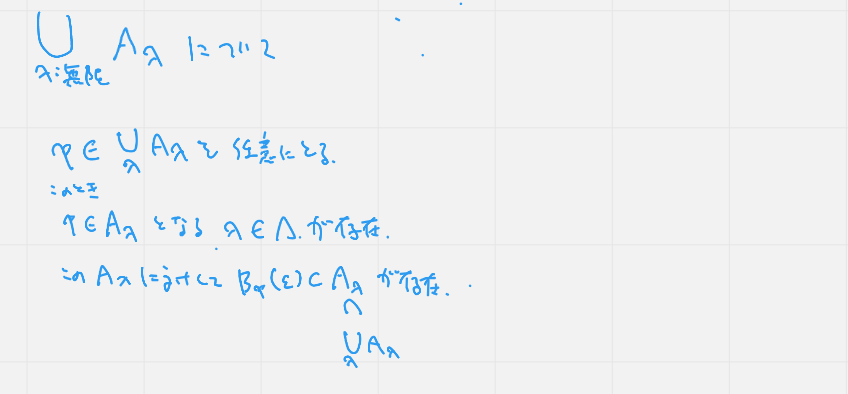 ⋃ A_λ について
λ:無限
p ∈ ⋃_λ A_λ を任意にとる.
このとき
p ∈ A_λ となる λ ∈ Λ. が存在.
この A_λ に対して B_p(ε) ⊂ A_λ が存在.
∩
⋃_λ A_λ